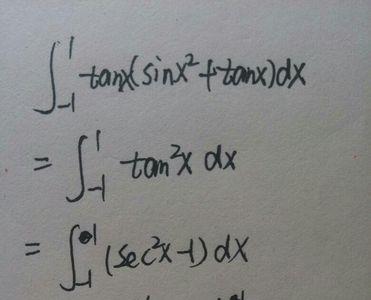 ∫₋₁¹ tanx(sinx²+tanx)dx
= ∫₋₁¹ tan²x dx
= ∫₋₁¹ (sec²x-1)dx